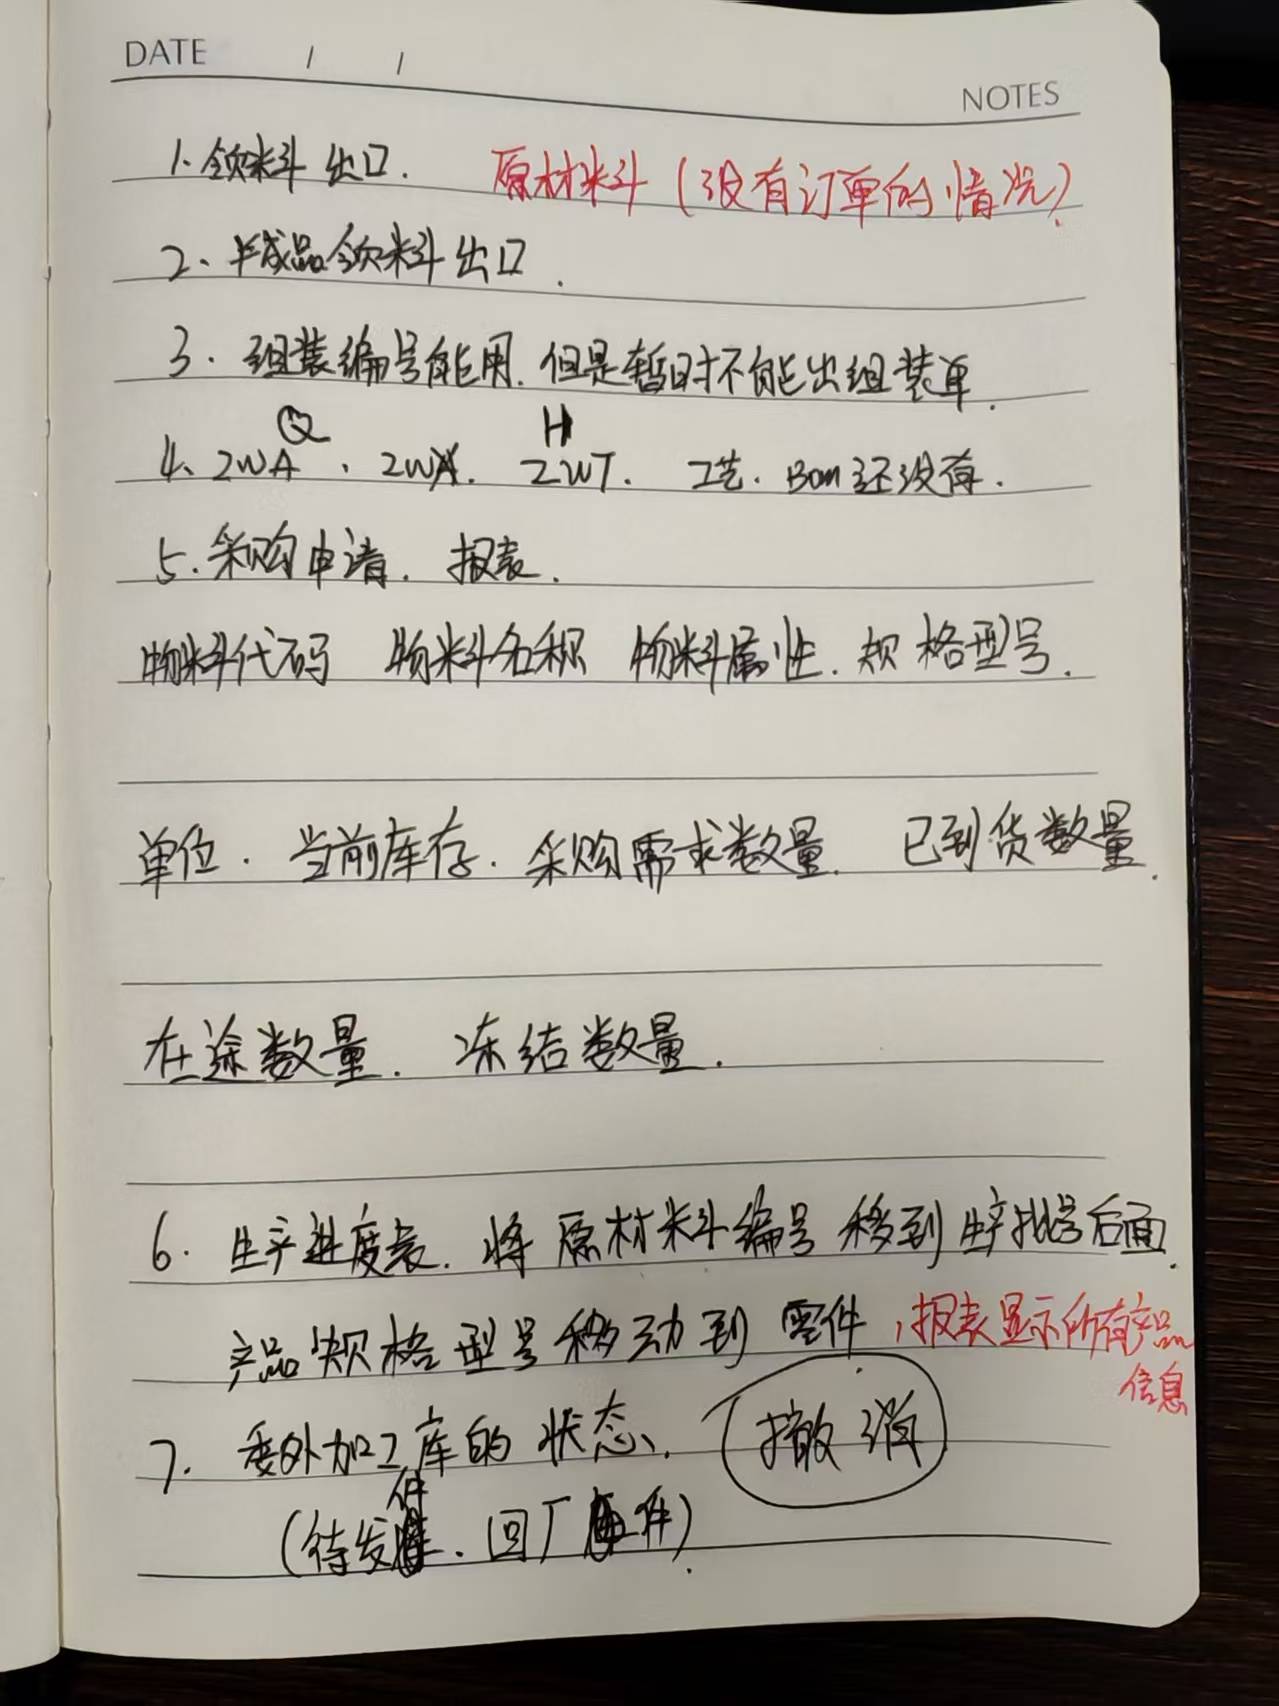 DATE / /
NOTES
1. 领料出口. 原材料（没有订单的情况）
2、半成品领料出口.
3. 组装编号能用. 但是暂时不能出组装单.
Q H
4、2WA、2WX. ZWT. 工艺. Bom还没有.
5. 采购申请. 报表.
物料代码 物料名称 物料属性. 规格型号.
单位. 当前库存. 采购需求数量. 已到货数量.
在途数量. 冻结数量.
6. 生产进度表. 将原材料编号移到生产批号后面.
产品规格型号移动到零件，报表显示所有产品
信息
7. 委外加工库的状态、撤消
件
（待发 . 回厂 件）.